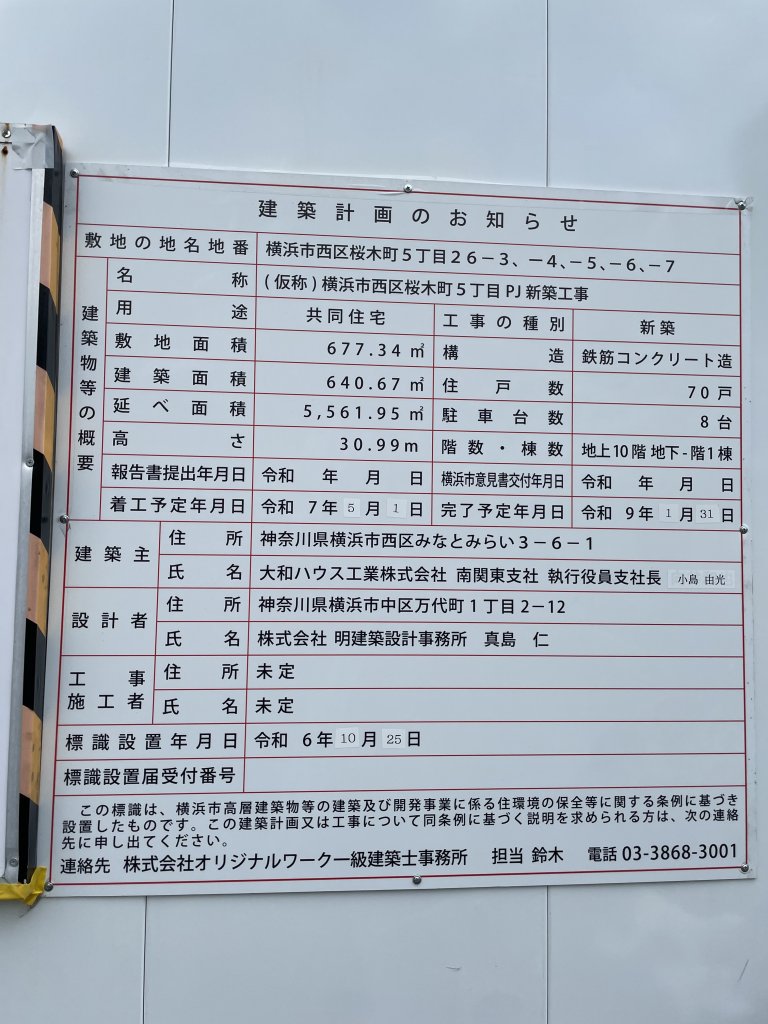 建築計画のお知らせ
敷地の地名地番 横浜市西区桜木町5丁目26-3、-4、-5、-6、-7
建築物等の概要
名称 (仮称)横浜市西区桜木町5丁目PJ新築工事
用途 共同住宅 工事の種別 新築
敷地面積 677.34㎡ 構造 鉄筋コンクリート造
建築面積 640.67㎡ 住戸数 70戸
延べ面積 5,561.95㎡ 駐車台数 8台
高さ 30.99m 階数・棟数 地上10階 地下-階1棟
報告書提出年月日 令和 年 月 日 横浜市意見書交付年月日 令和 年 月 日
着工予定年月日 令和 7年 5月 1日 完了予定年月日 令和 9年 1月 31日
建築主 住所 神奈川県横浜市西区みなとみらい3-6-1
氏名 大和ハウス工業株式会社 南関東支社 執行役員支社長 小島 由光
設計者 住所 神奈川県横浜市中区万代町1丁目2-12
氏名 株式会社 明建築設計事務所 真島 仁
工事施工者 住所 未定
氏名 未定
標識設置年月日 令和 6年 10月 25日
標識設置届受付番号
この標識は、横浜市高層建築物等の建築及び開発事業に係る住環境の保全等に関する条例に基づき
設置したものです。この建築計画又は工事について同条例に基づく説明を求められる方は、次の連絡
先に申し出てください。
連絡先 株式会社オリジナルワーク一級建築士事務所 担当 鈴木 電話 03-3868-3001